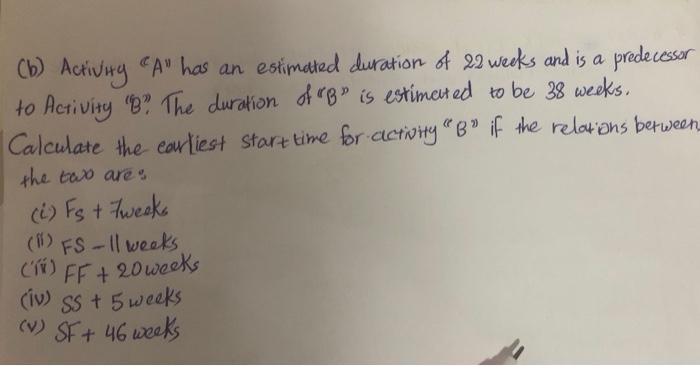 (b) Activity "A" has an estimated duration of 22 weeks and is a predecessor
to Activity "B". The duration of "B" is estimated to be 38 weeks.
Calculate the earliest start time for activity "B" if the relations between
the two are:
(i) FS + 7weeks
(ii) FS - 11 weeks
(iii) FF + 20 weeks
(iv) SS + 5 weeks
(v) SF + 46 weeks